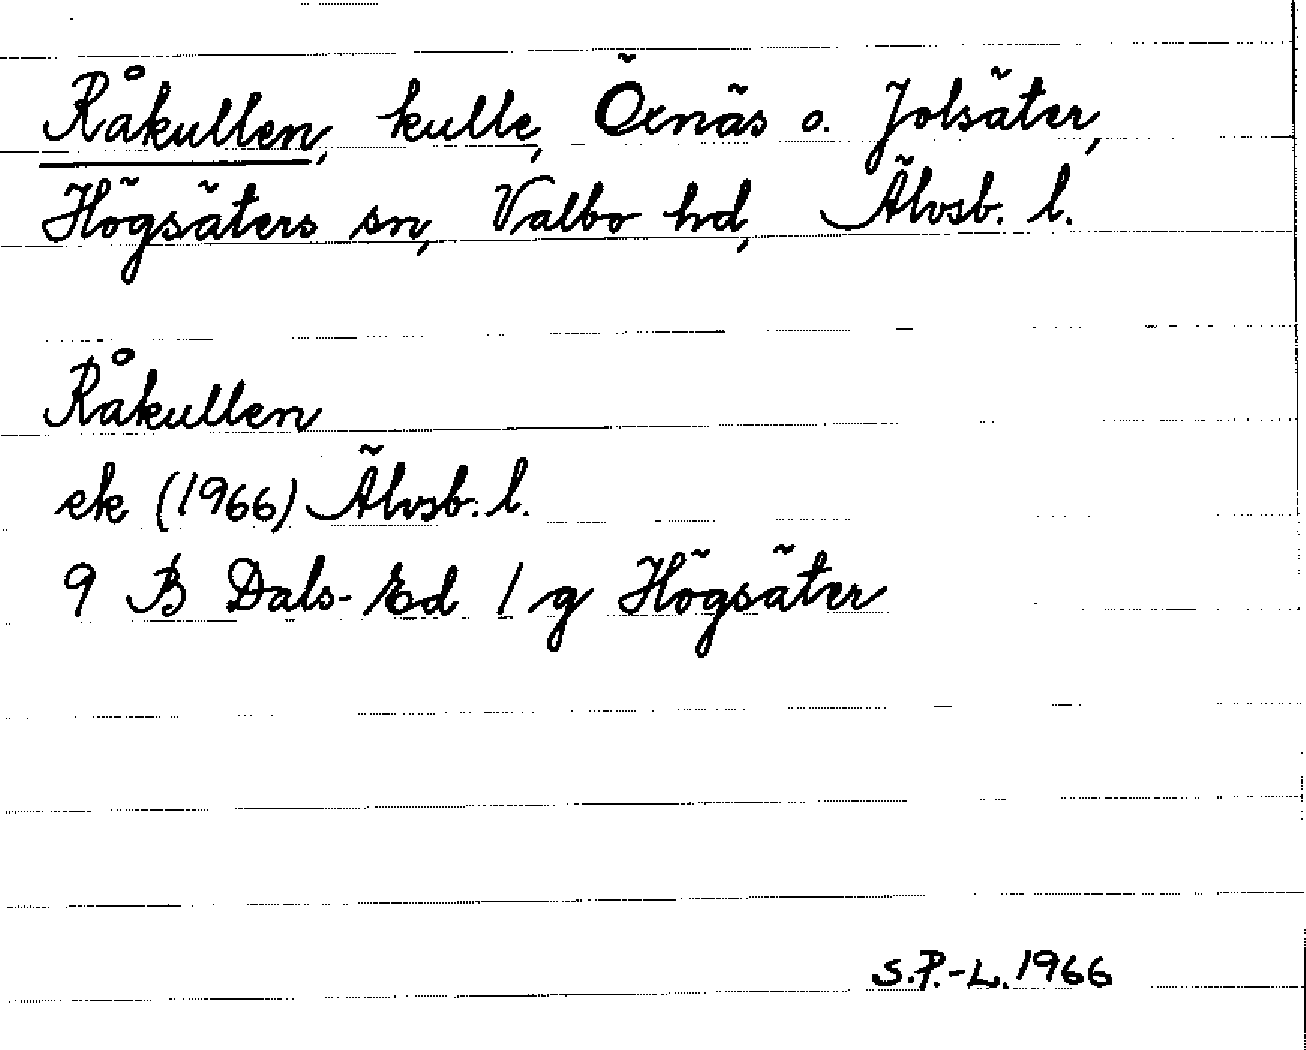 Råkullen, kulle, Öxnäs o. Jolsäter,
Högsäters sn, Valbo hd, Älvsb. l.
Råkullen
ek (1966) Älvsb. l.
9 B Dals-Ed 1 g Högsäter
S.P.-L. 1966